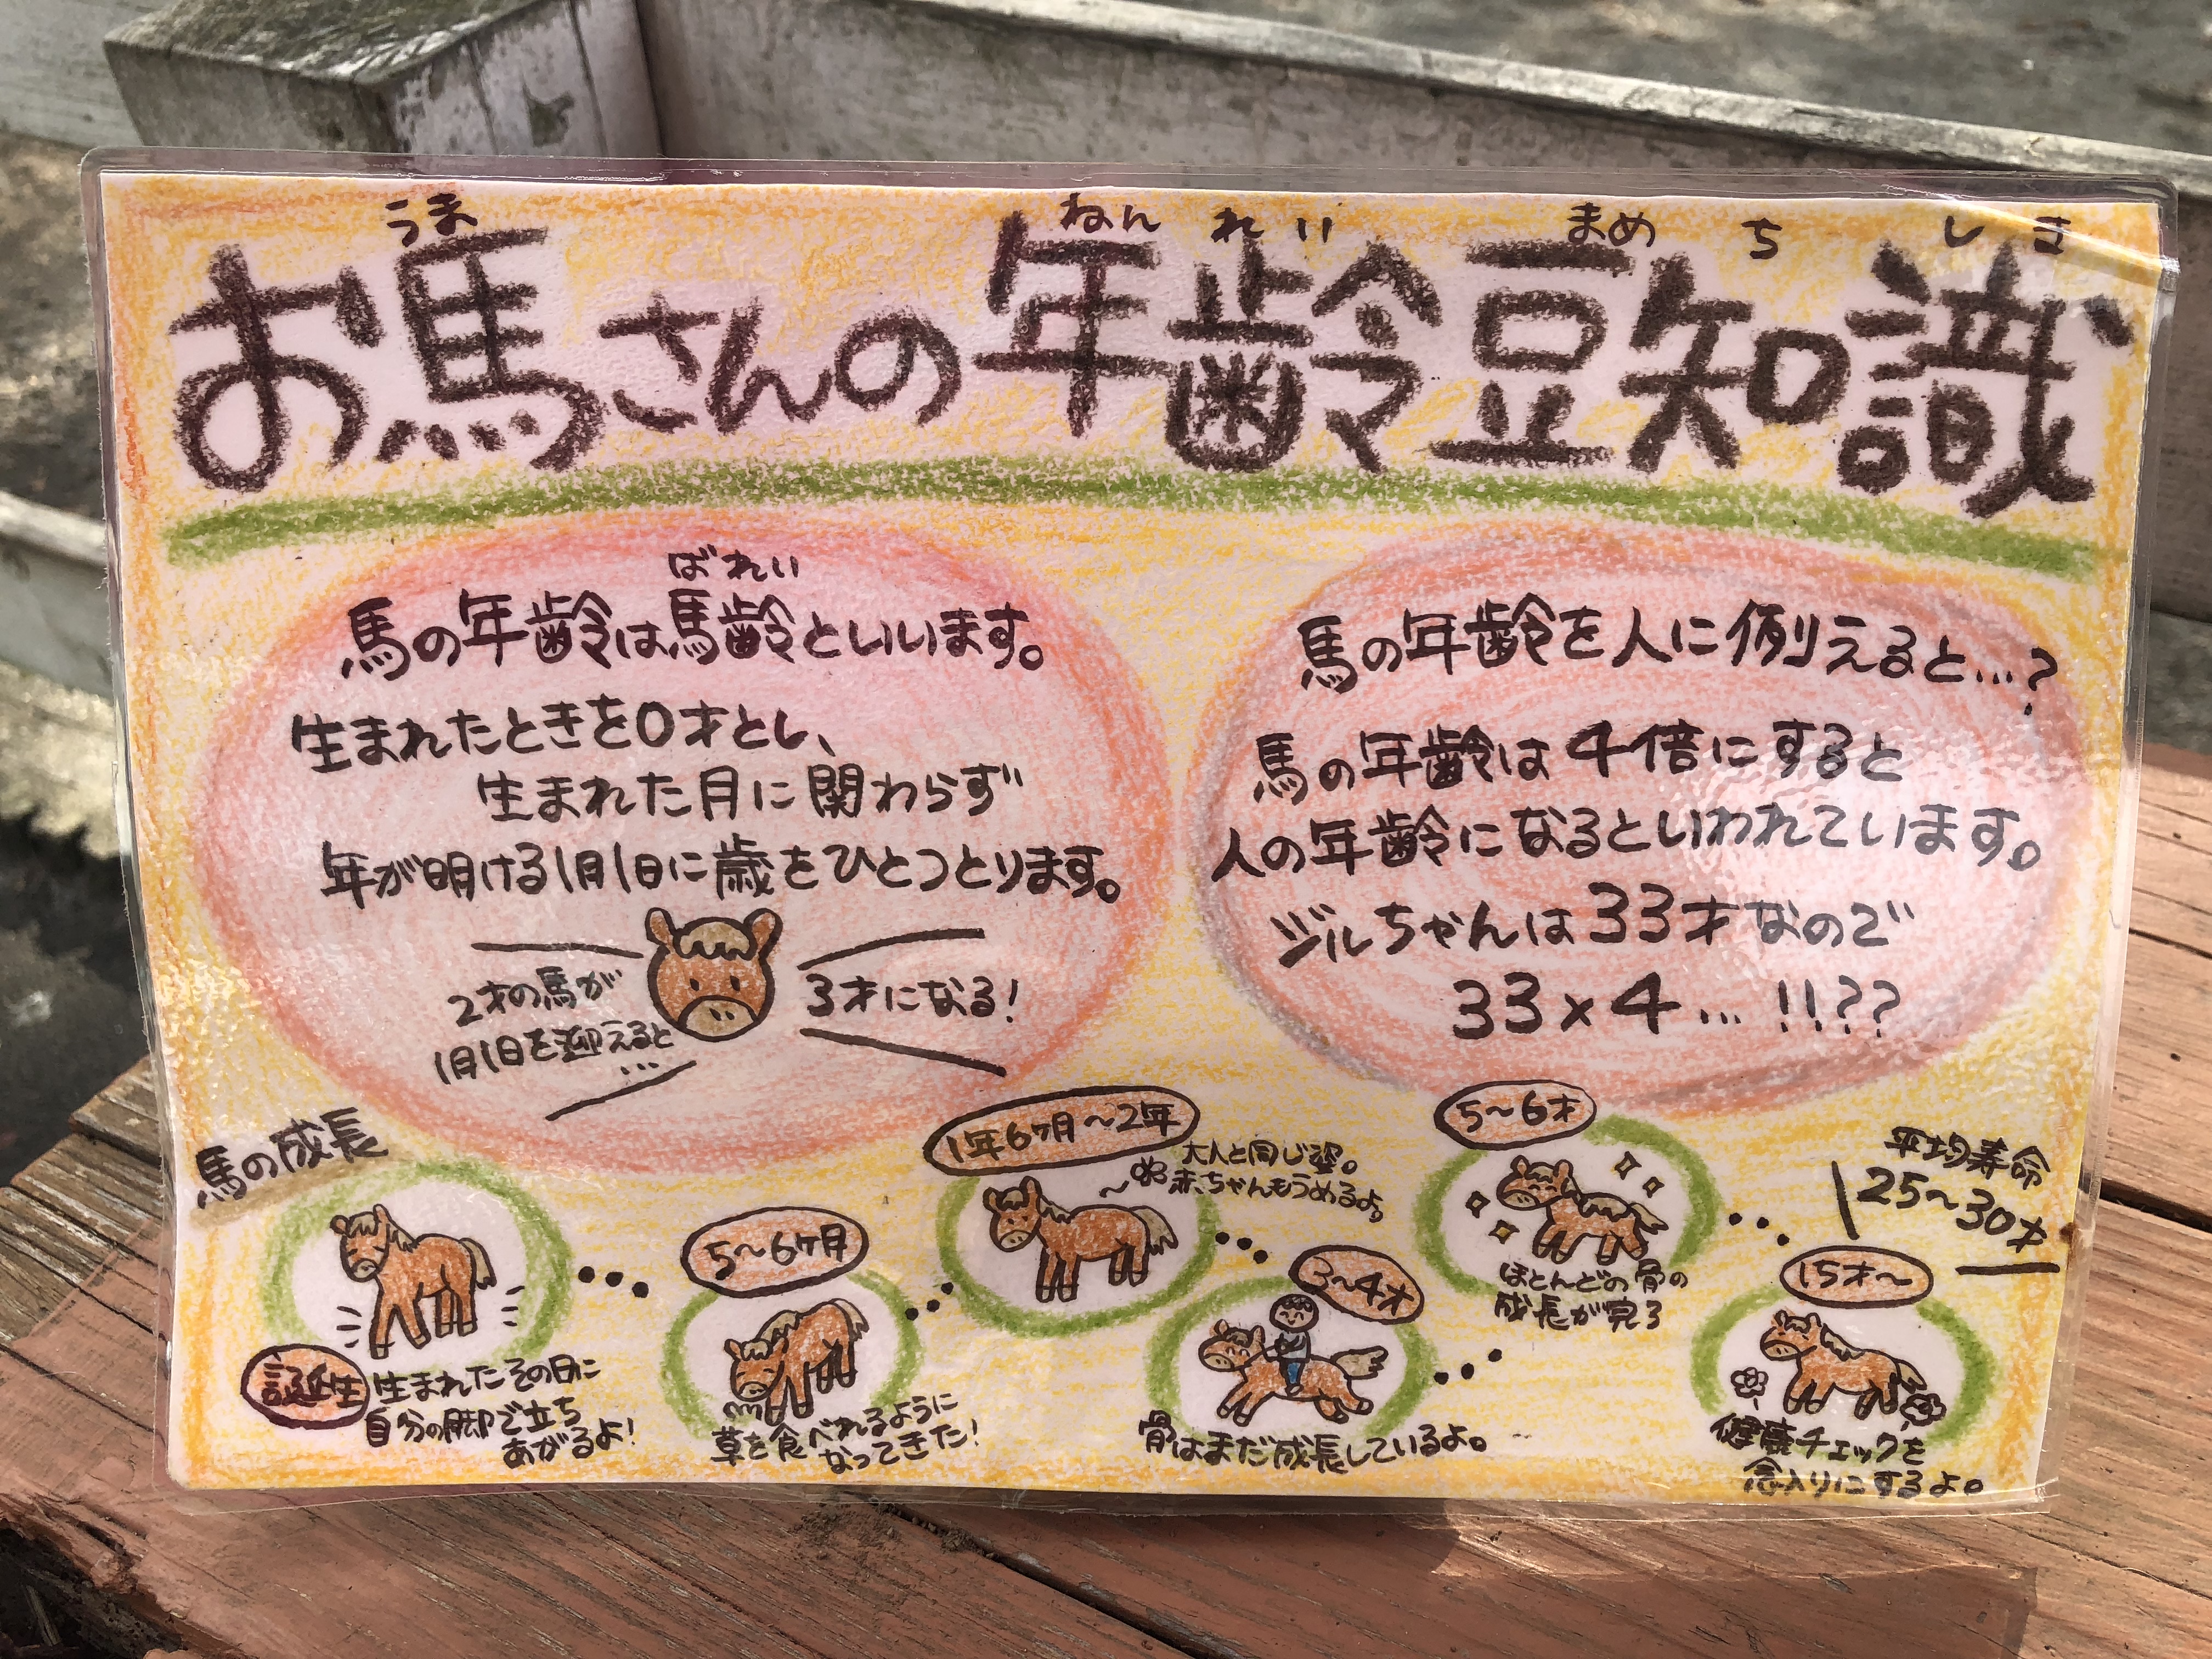 うま ねんれい まめちしき
お馬さんの年齢豆知識
ばれい
馬の年齢は馬齢といいます。
生まれたときを0才とし、
生まれた月に関わらず
年が明ける1月1日に歳をひとつとります。
2才の馬が
1月1日を迎えると
…
3才になる!
馬の年齢を人に例えると…?
馬の年齢は4倍にすると
人の年齢になるといわれています。
ジルちゃんは33才なので
33×4…!!??
馬の成長
誕生
生まれたその日に
自分の脚で立ち
あがるよ!
5~6ヶ月
草を食べれるように
なってきた!
1年6ヶ月~2年
大人と同じ姿。
赤ちゃんもうめるよ。
3~4才
骨はまだ成長しているよ。
5~6才
ほとんどの骨の
成長が完了
平均寿命
25~30才
15才~
健康チェックを
念入りにするよ。